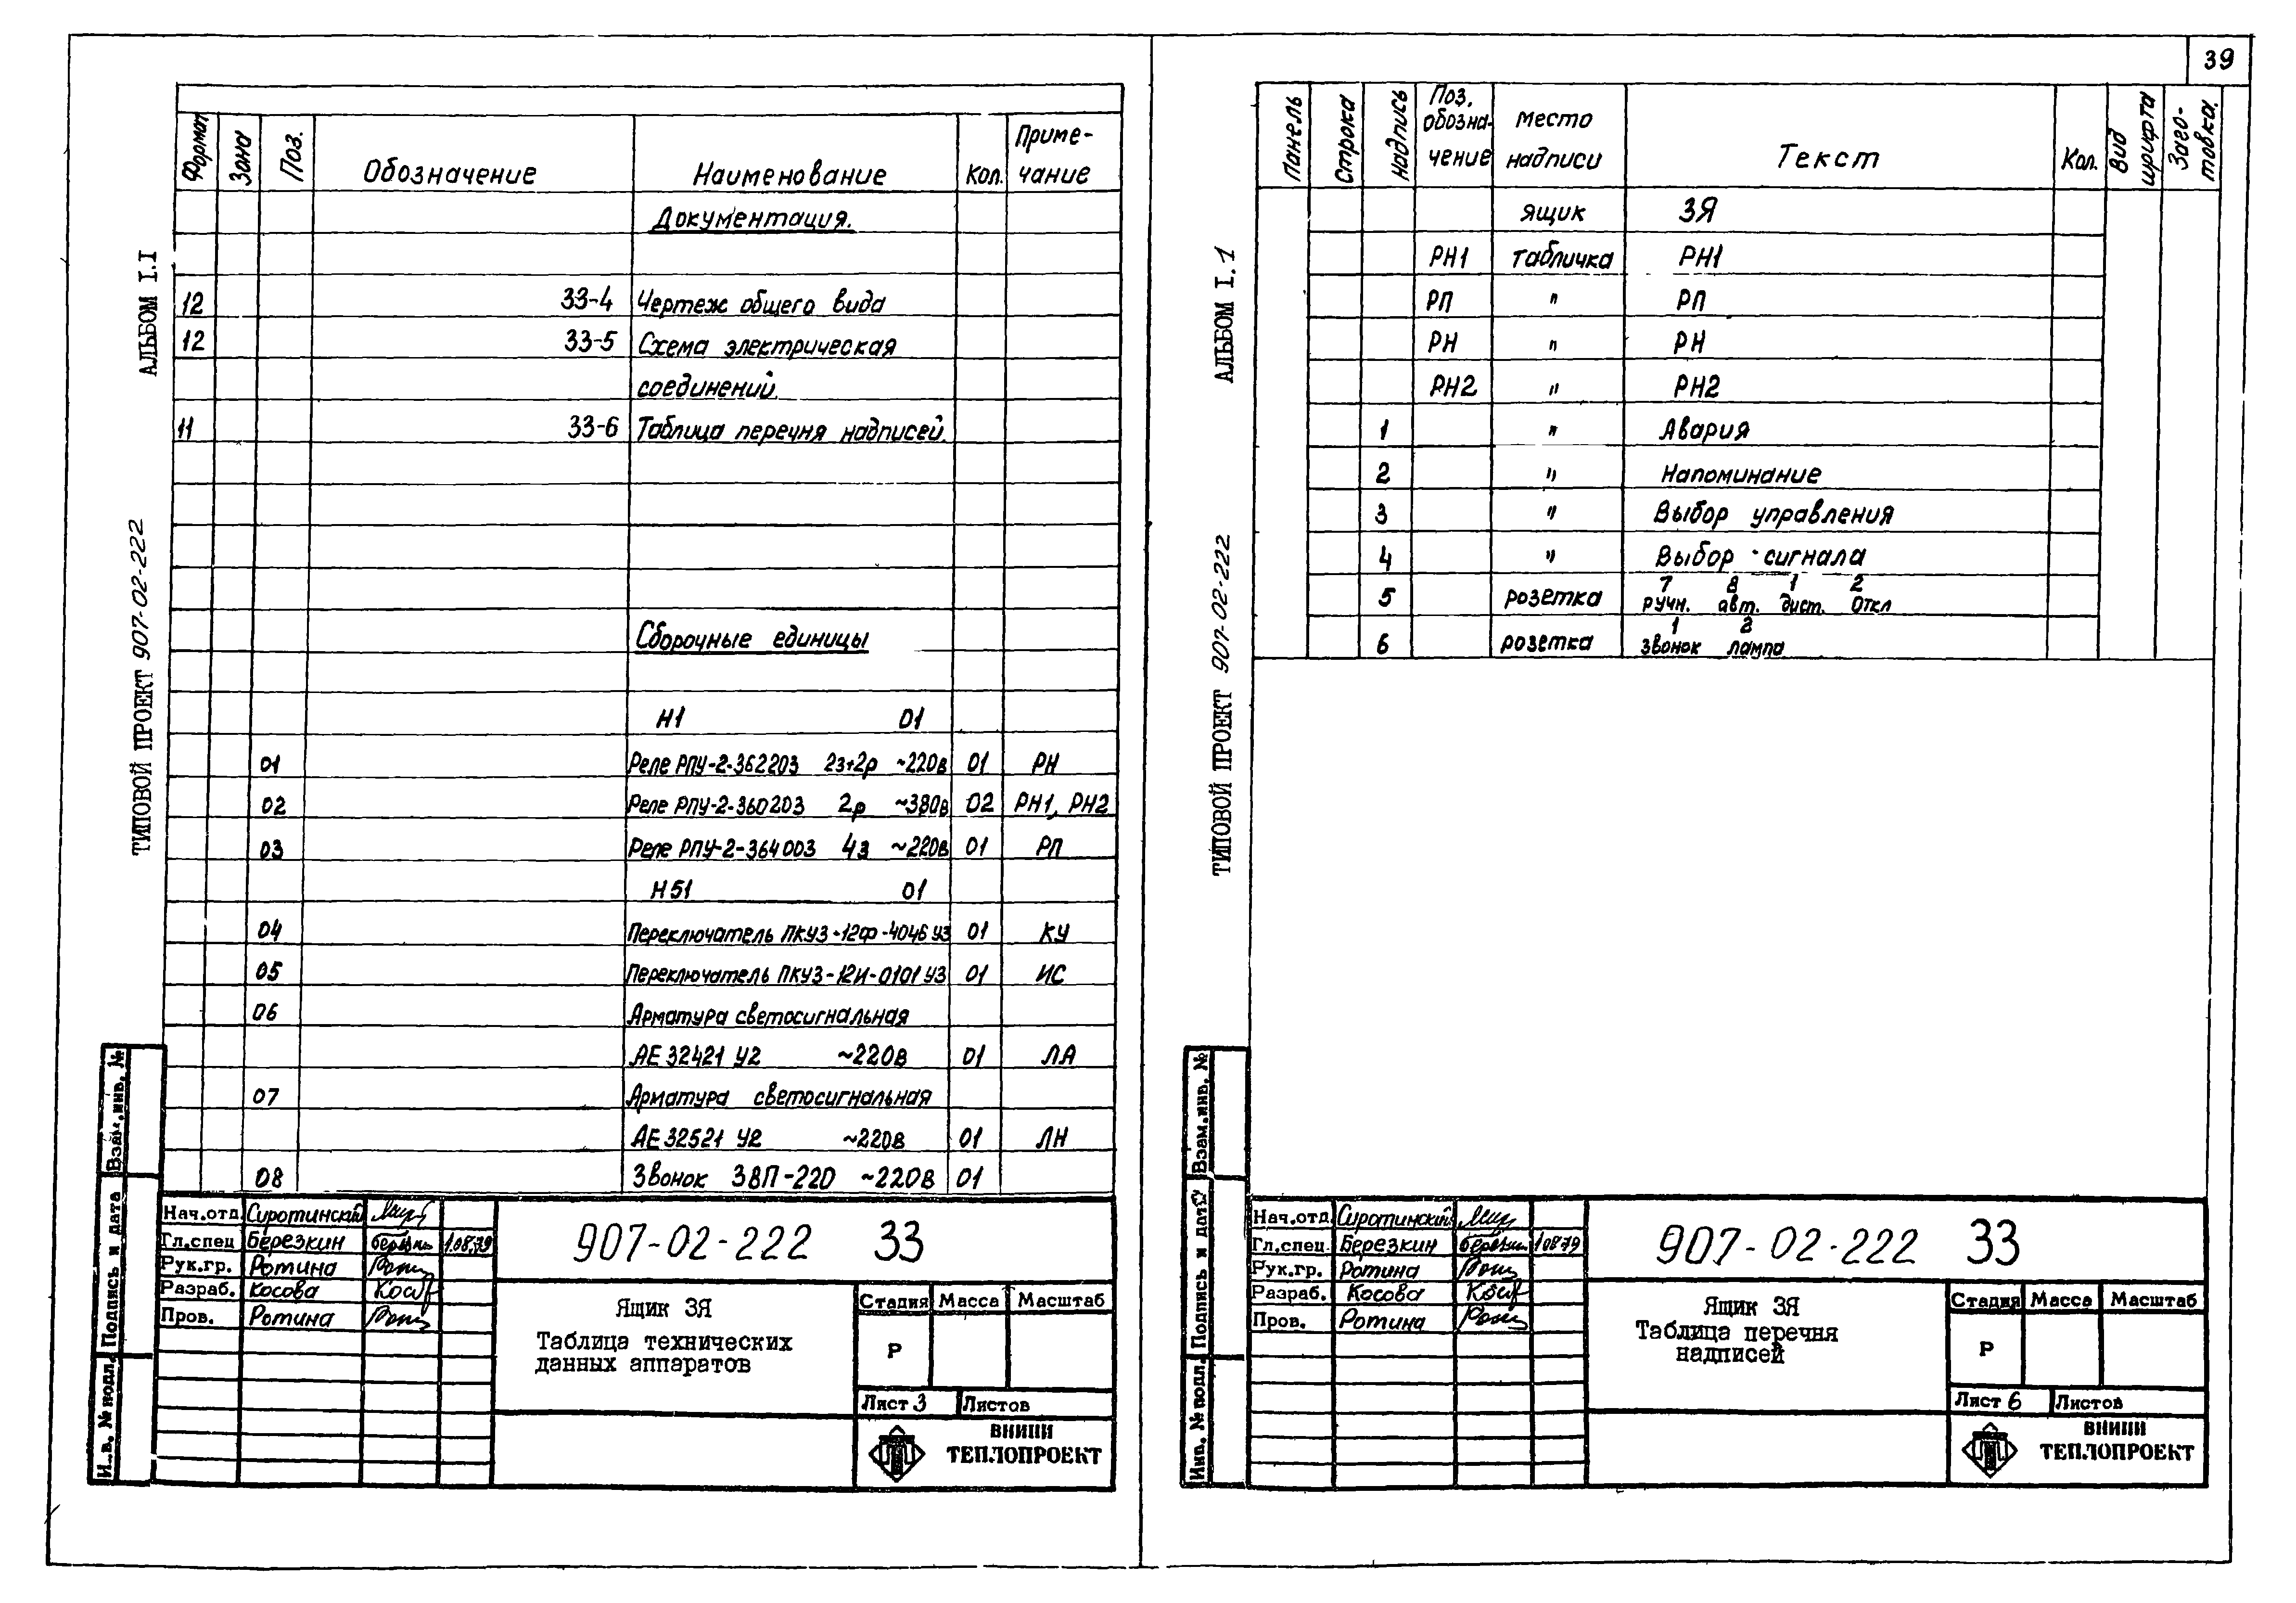 39
АЛЬБОМ I.I
ТИПОВОЙ ПРОЕКТ 907-02-222
Формат Зона Поз. Обозначение Наименование Кол. Приме-чание
Документация.
12 33-4 Чертеж общего вида
12 33-5 Схема электрическая
соединений.
11 33-6 Таблица перечня надписей.
Сборочные единицы
Н1 01
01 Реле РПУ-2-362203 2з+2р ~220в 01 РН
02 Реле РПУ-2-360203 2р ~380в 02 РН1, РН2
03 Реле РПУ-2-364003 4з ~220в 01 РП
Н51 01
04 Переключатель ПКУ3-12Ф-4046 У3 01 КУ
05 Переключатель ПКУ3-12И-0101 У3 01 ИС
06 Арматура светосигнальная
АЕ 32421 У2 ~220в 01 ЛА
07 Арматура светосигнальная
АЕ 32521 У2 ~220в 01 ЛН
08 Звонок ЗВП-220 ~220в 01
Взам.инв. №
Подпись и дата
И..в. № подл.
Нач.отд. Сиротинский
Гл.спец Березкин 1.08.79
Рук.гр. Ротина
Разраб. Косова
Пров. Ротина
907-02-222 33
Ящик 3Я
Таблица технических
данных аппаратов
Стадия Масса Масштаб
Р
Лист 3 Листов
ВНИПИ
ТЕПЛОПРОЕКТ
АЛЬБОМ I.1
ТИПОВОЙ ПРОЕКТ 907-02-222
Панель Строка Надпись Поз. обозна-чение Место надписи Текст Кол. Вид шрифта Заго-товка.
ящик 3Я
РН1 табличка РН1
РП " РП
РН " РН
РН2 " РН2
1 " Авария
2 " Напоминание
3 " Выбор управления
4 " Выбор сигнала
7 8 1 2
5 розетка ручн. авт. дист. откл
1 2
6 розетка звонок лампа
Взам.инв. №
Подпись и дата
Инв. № подл.
Нач.отд. Сиротинский
Гл.спец. Березкин 1.08.79
Рук.гр. Ротина
Разраб. Косова
Пров. Ротина
907-02-222 33
Ящик 3Я
Таблица перечня
надписей
Стадия Масса Масштаб
Р
Лист 6 Листов
ВНИПИ
ТЕПЛОПРОЕКТ